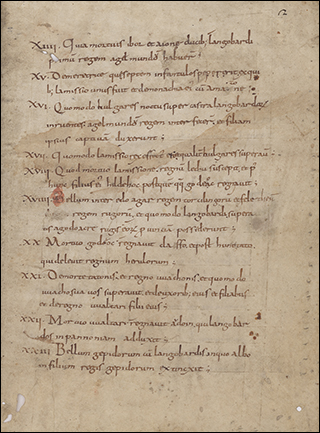 XIIII. Qua mortuis ibor et aione ducib; langobardi
primũ regem agelmundũ habuer̃
XV. De meretrice que septem infantulos peperit, ex qui
b; lamissio unus fuit et
XVI. Quomodo bulgares noctu super castra langobardorũ
inruentes agelmundũ regem interfecer̃ et filiam
ipsius captiuam duxerunt;
XVII. Quomodo lamissio rex effect; e et qualit̃ bulgares superauit;
XVIII. Quod mortuo lamissione, regnũ lethu suscepit, et p;
hunc filius ei; hildehoc postque quẽ godehoc regnauit;
XVIIII. Bellum inter odoagar regem et
regem rugorũ, et quomodo
possederunt;
XX Mortuo godehoc regnauit claffo, et post hunc tato
qui deleuit regnum herulorum;
XXI. De morte tatonis, et regno uuachonis, et quomodo
uuacho suauos superauit, et de uxorib; eius et filiabus
et de regno uualtari filii eius;
XXII. Mortuo uualtari regnauit audoin, qui langobar
dos in pannoniam adduxit;
XXIII Bellum gepidorum cũ langobardis, in quo albo
in filium regis gepidorum extinxit;